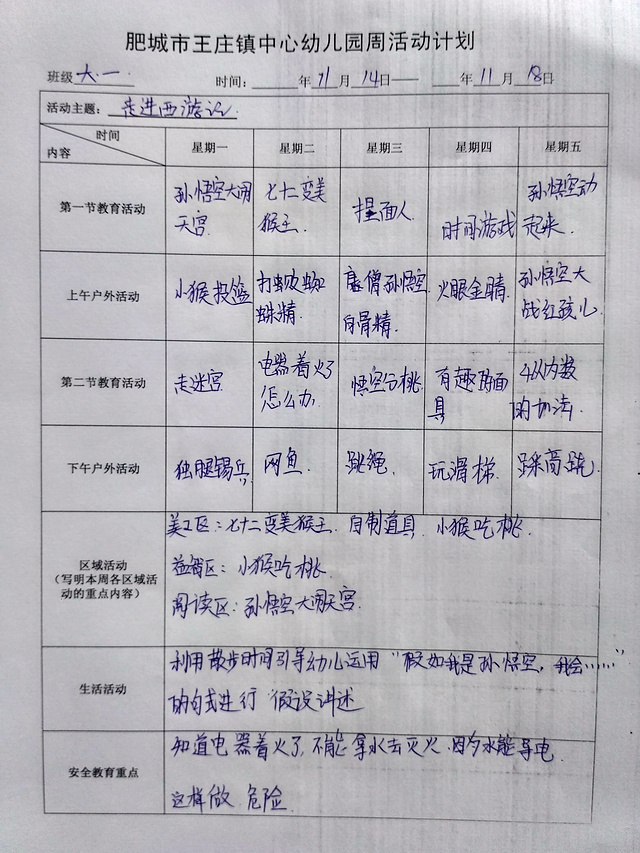 肥城市王庄镇中心幼儿园周活动计划
班级 大一 时间: 年 11 月 14 日—— 年 11 月 18 日
活动主题: 走进西游记.
时间
内容 星期一 星期二 星期三 星期四 星期五
第一节教育活动 孙悟空大闹 七十二变美 捏面人. 时间游戏 孙悟空动
天宫. 猴王. 起来.
上午户外活动 小猴投篮 打败蜘 唐僧孙悟空 火眼金睛. 孙悟空大
蛛精. 白骨精. 战红孩儿
第二节教育活动 走迷宫 电器着火了 悟空分桃 有趣的面 4以内数
怎么办. 具 的加法.
下午户外活动 独腿锡兵 网鱼. 跳绳. 玩滑梯. 踩高跷.
区域活动
(写明本周各区域活
动的重点内容)
美工区:七十二变美猴王. 自制道具. 小猴吃桃.
益智区:小猴吃桃.
阅读区:孙悟空大闹天宫.
生活活动
利用散步时间引导幼儿运用“假如我是孙悟空,我会……”
的句式进行 假设讲述
安全教育重点
知道电器着火了,不能拿水去灭火.因为水能导电.
这样做 危险.